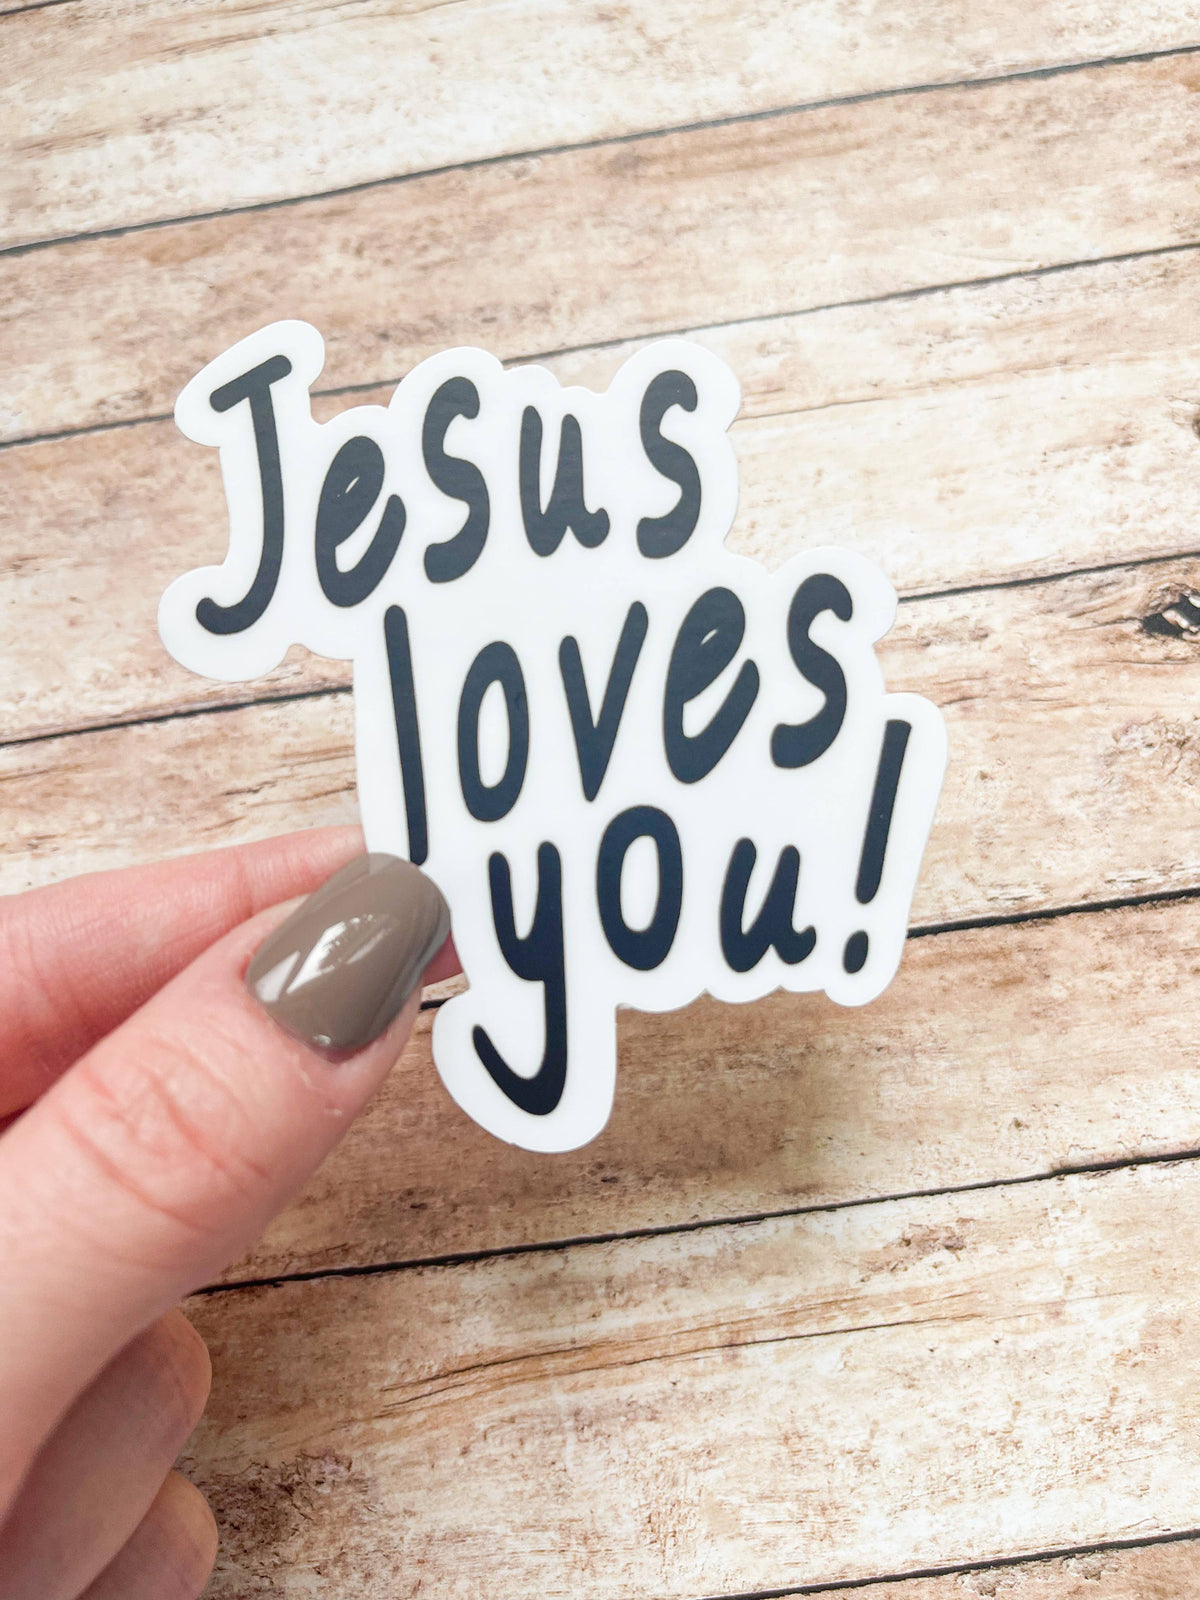 Jesus
loves
you!